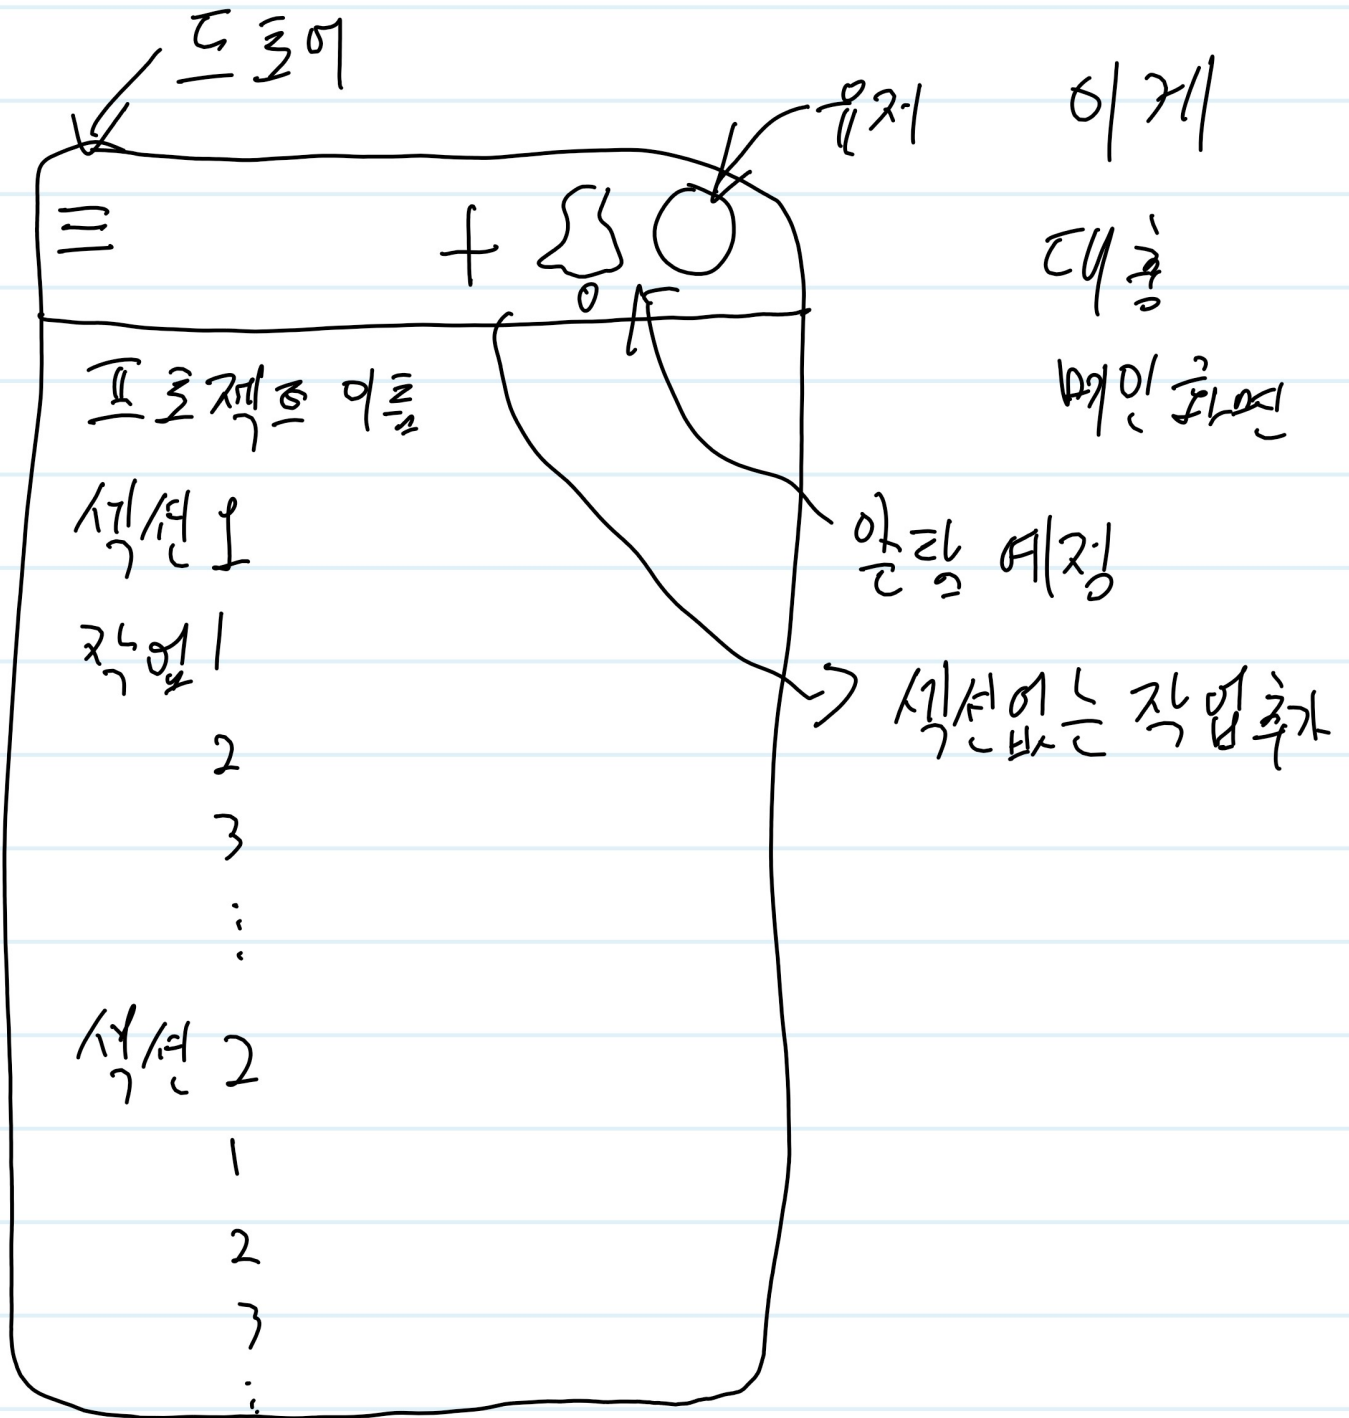 드로어
유저
이게
대충
메인화면
+
프로젝트 이름
섹션 1
작업 1
2
3
⋮
섹션 2
1
2
3
⋮
예정
섹션없는 작업추가